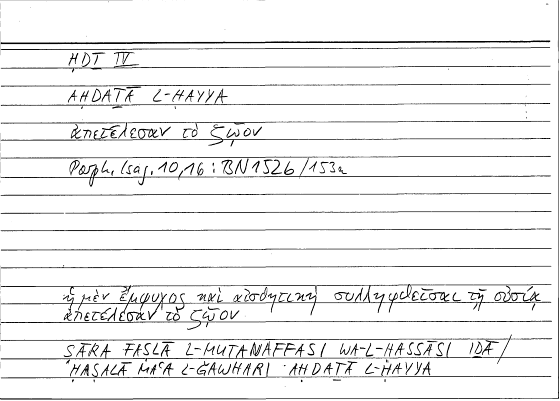 ḤDṮ IV
AḤDAṮĀ L-ḤAYYA
ἀπετέλεσαν τὸ ζῷον
Porph. Isag. 10,16 : BN 1526/153a
ἡ μὲν ἔμψυχος καὶ αἰσθητικὴ συλληφθεῖσαι τῇ οὐσίᾳ
ἀπετέλεσαν τὸ ζῷον
ṢĀRA FAṢLĀ L-MUTANAFFASI WA-L-ḤASSĀSI IḎĀ/
ḤAṢALĀ MAʿA L-ǦAWHARI AḤDAṮĀ L-ḤAYYA